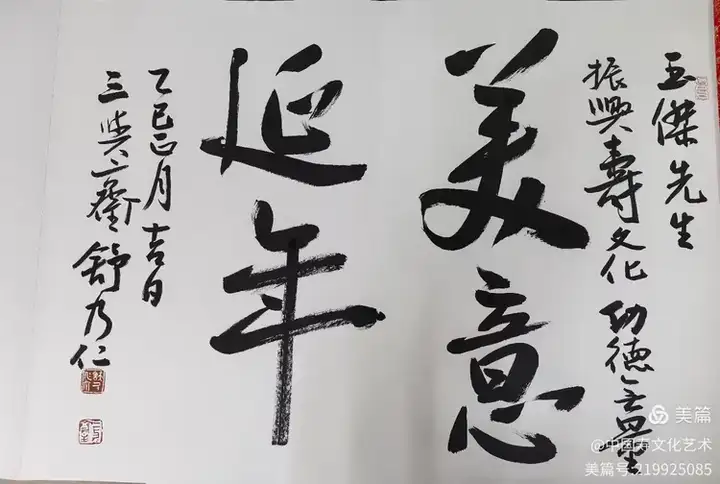 玉傑先生
振興壽文化 功德无量
美意
延年
乙巳正月吉日
三 舒乃仁
美篇
@中国寿文化艺术
美篇号:219925085